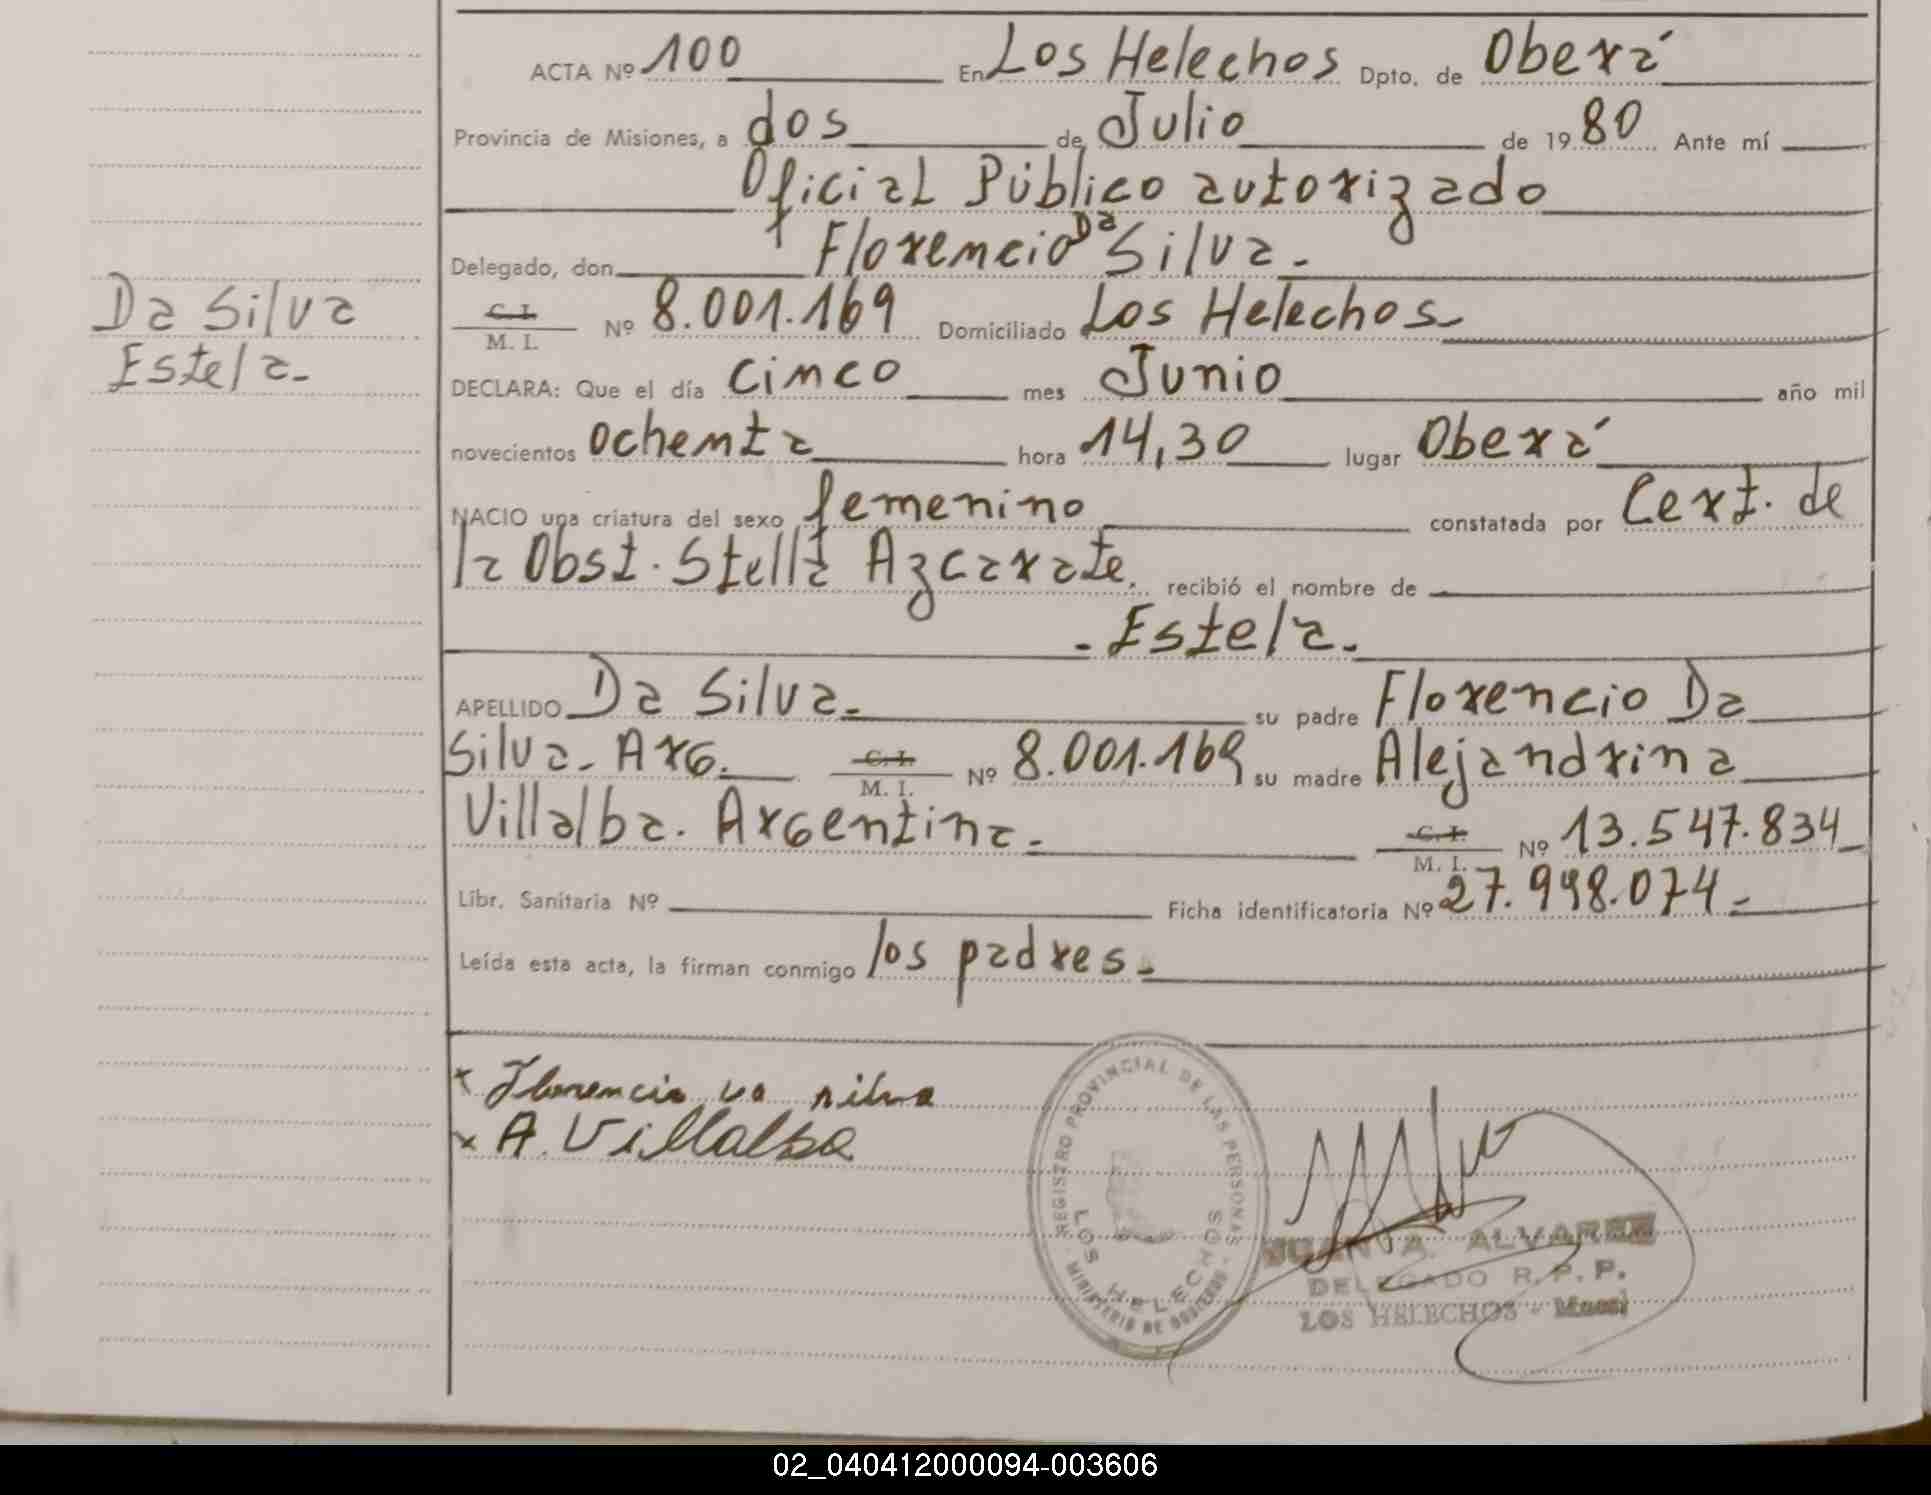 ACTA Nº 100 En Los Helechos Dpto. de Oberá
Provincia de Misiones, a dos de Julio de 19 80 Ante mí
Oficial Público autorizado
Delegado, don Florencio Da Silva.-
C. I.
M. I. Nº 8.001.169 Domiciliado Los Helechos
DECLARA: Que el día cinco mes Junio año mil
novecientos ochenta hora 14,30 lugar Oberá
NACIO una criatura del sexo femenino constatada por Cert. de
la Obst. Stella Azcarate. recibió el nombre de
- Estela.-
APELLIDO Da Silva.- su padre Florencio Da
Silva - Arg. C. I. M. I. Nº 8.001.169 su madre Alejandrina
Villalba. Argentina.- C. I. M. I. Nº 13.547.834
Libr. Sanitaria Nº Ficha identificatoria Nº 27.998.074.-
Leída esta acta, la firman conmigo los padres.-
Da Silva
Estela.-
x Florencio va silva
x A. Villalba
REGISTRO PROVINCIAL DE LAS PERSONAS
LOS HELECHOS
MINISTERIO DE GOBIERNO
JUAN A. ALVAREZ
DELEGADO R. P. P.
LOS HELECHOS - Mnes)
02_040412000094-003606